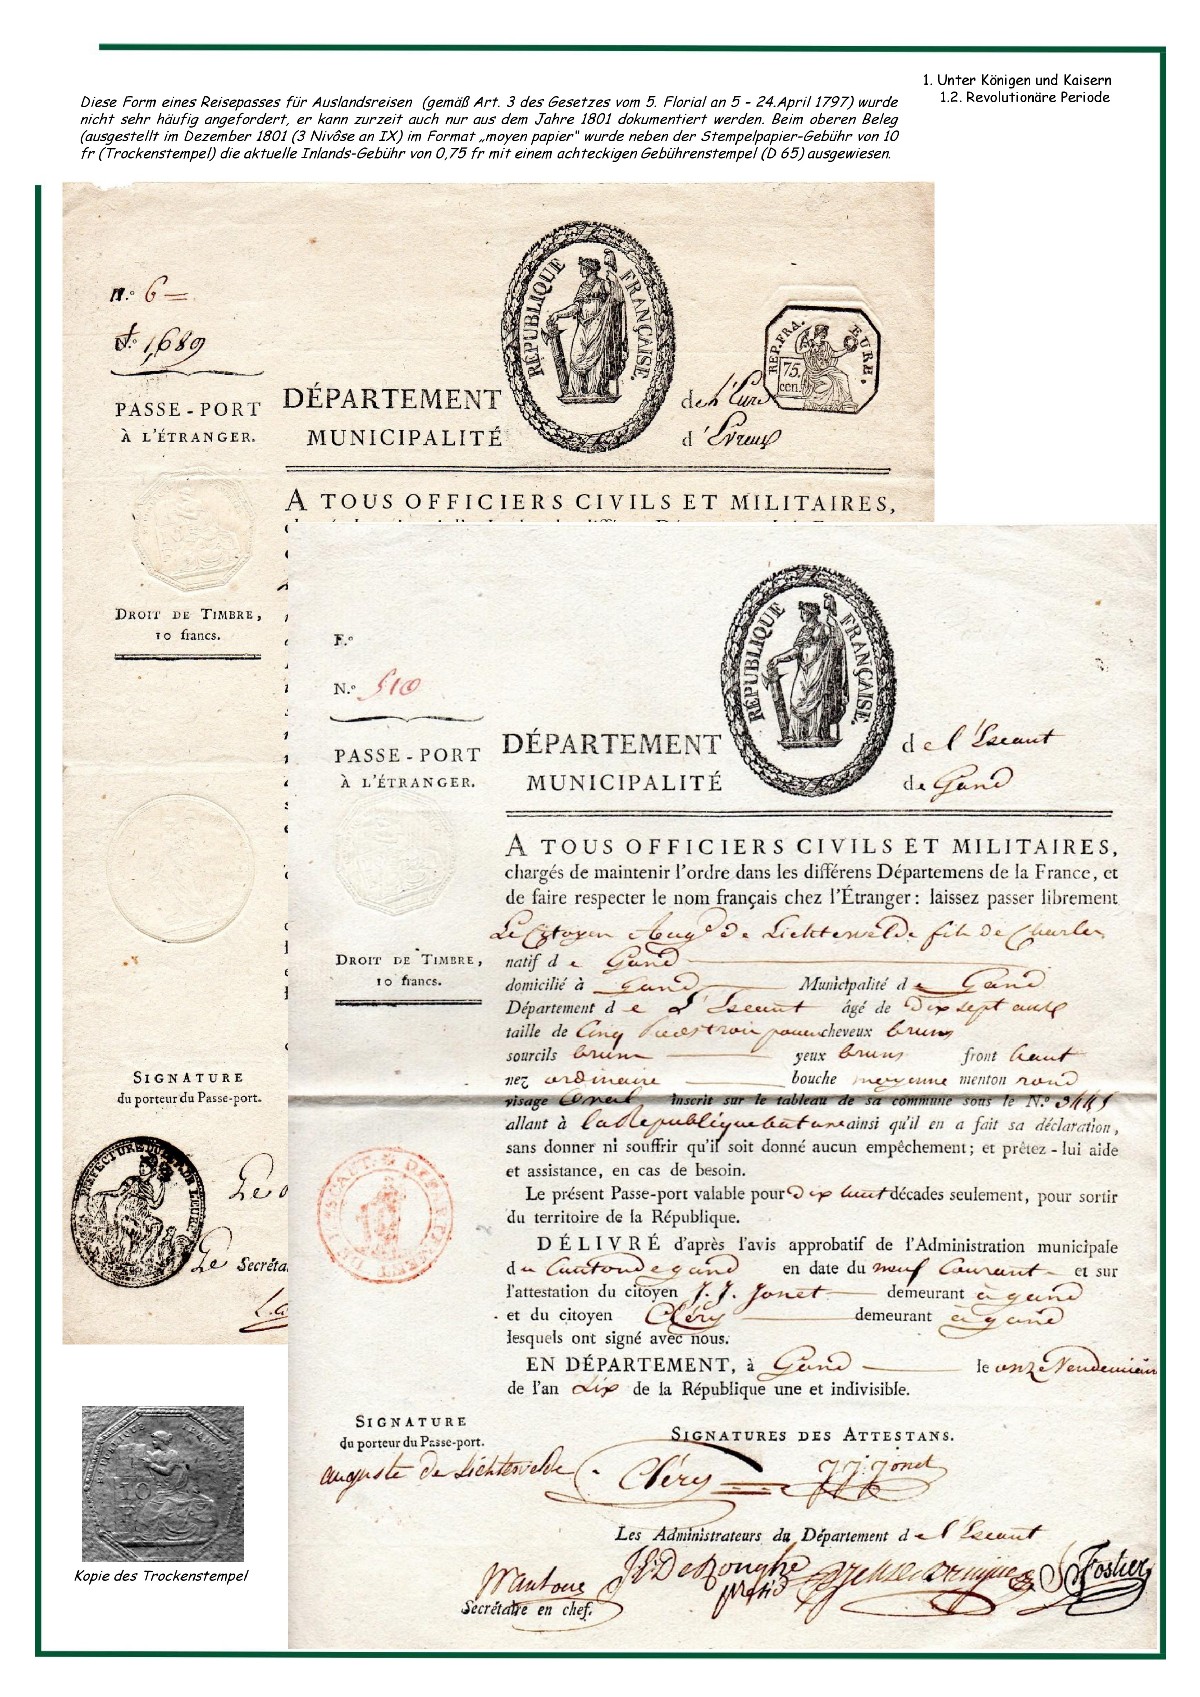 1. Unter Königen und Kaisern
1.2. Revolutionäre Periode
Diese Form eines Reisepasses für Auslandsreisen (gemäß Art. 3 des Gesetzes vom 5. Florial an 5 - 24.April 1797) wurde
nicht sehr häufig angefordert, er kann zurzeit auch nur aus dem Jahre 1801 dokumentiert werden. Beim oberen Beleg
(ausgestellt im Dezember 1801 (3 Nivôse an IX) im Format „moyen papier" wurde neben der Stempelpapier-Gebühr von 10
fr (Trockenstempel) die aktuelle Inlands-Gebühr von 0,75 fr mit einem achteckigen Gebührenstempel (D 65) ausgewiesen.
N.º 6
N.º 1,689
PASSE-PORT
À L'ÉTRANGER.
DROIT DE TIMBRE,
10 francs.
RÉPUBLIQUE FRANÇAISE.
REP. FRA. EURE.
75.
cen.
DÉPARTEMENT de l'Eure
MUNICIPALITÉ d'Evreux
A TOUS OFFICIERS CIVILS ET MILITAIRES,
SIGNATURE
du porteur du Passe-port.
PRÉFECTURE DE L'EURE
Le
Le Secréta
F.º
N.º 510
PASSE-PORT
À L'ÉTRANGER.
DROIT DE TIMBRE,
10 francs.
RÉPUBLIQUE FRANÇAISE.
DÉPARTEMENT de l'Escaut
MUNICIPALITÉ de Gand
A TOUS OFFICIERS CIVILS ET MILITAIRES,
chargés de maintenir l'ordre dans les différens Départemens de la France, et
de faire respecter le nom français chez l'Étranger: laissez passer librement
Le Citoyen Aug.e de Lichtervelde fils de Charles
natif de Gand
domicilié à Gand Municipalité de Gand
Département de L'Escaut âgé de Dix sept ans
taille de Cinq pieds trois pouces cheveux bruns
sourcils bruns yeux bruns front haut
nez ordinaire bouche moyenne menton rond
visage Oval inscrit sur le tableau de sa commune sous le N.º 3445
allant à la République batave ainsi qu'il en a fait sa déclaration,
sans donner ni souffrir qu'il soit donné aucun empêchement; et prêtez-lui aide
et assistance, en cas de besoin.
Le présent Passe-port valable pour dix huit décades seulement, pour sortir
du territoire de la République.
DÉLIVRÉ d'après l'avis approbatif de l'Administration municipale
du Canton de gand en date du neuf Courant et sur
l'attestation du citoyen J. J. Jonet demeurant à gand
et du citoyen Cléry demeurant à gand
lesquels ont signé avec nous.
EN DÉPARTEMENT, à Gand le onze Vendemiair
de l'an Dix de la République une et indivisible.
SIGNATURE
du porteur du Passe-port.
auguste de Lichtervelde
SIGNATURES DES ATTESTANS.
Cléry J J Jonet
Les Administrateurs du Département de l'Escaut
Secrétaire en chef.
10
Kopie des Trockenstempel